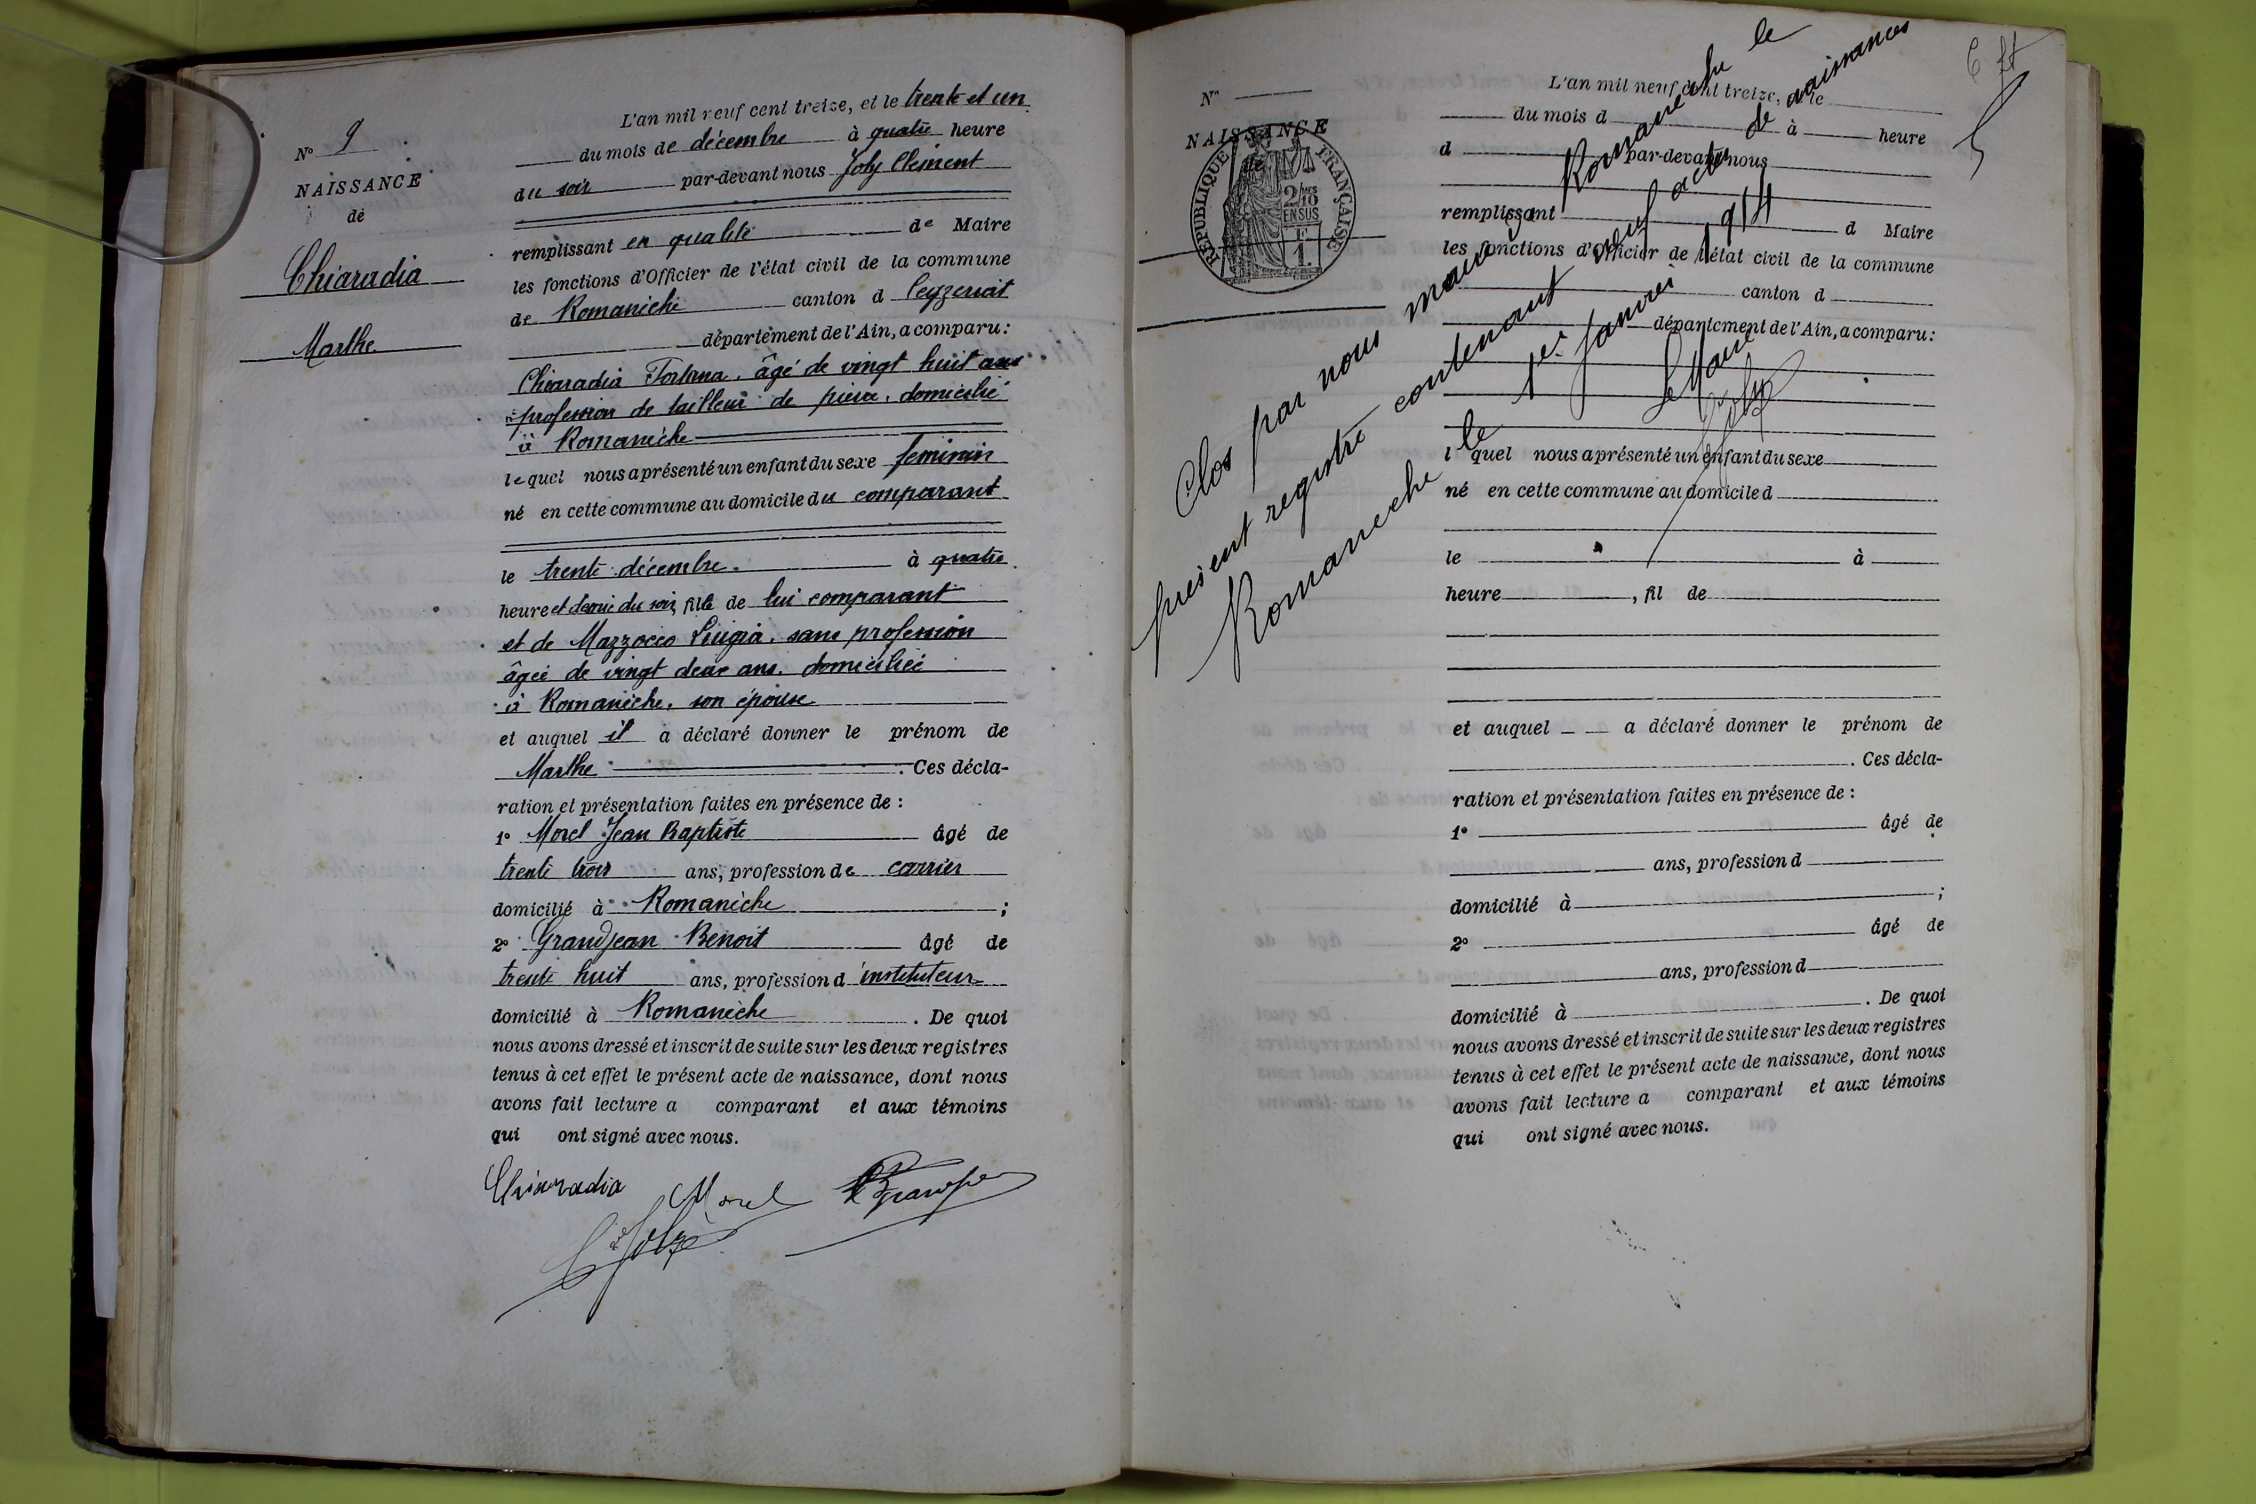 L'an mil neuf cent treize, et le trente et un
N° 9
du mois de décembre à quatre heure
NAISSANCE
du soir par-devant nous Joly Clément
de
remplissant en qualité de Maire
Chiaradia
les fonctions d'Officier de l'état civil de la commune
de Romanèche canton d Ceyzeriat
Marthe
département de l'Ain, a comparu:
Chiaradia Fortuna, âgé de vingt huit ans
profession de tailleur de pierre, domicilié
à Romanèche
lequel nous a présenté un enfant du sexe feminin
né en cette commune au domicile du comparant
le trente décembre à quatre
heure et demie du soir, fille de lui comparant
et de Mazzocco Luigia, sans profession
âgée de vingt deux ans, domiciliée
à Romanèche, son épouse
et auquel il a déclaré donner le prénom de
Marthe. Ces décla-
ration et présentation faites en présence de :
1° Morel Jean Baptiste âgé de
trente trois ans, profession de carrier
domicilié à Romanèche ;
2° Grandjean Benoit âgé de
trente huit ans, profession d'instituteur
domicilié à Romanèche. De quoi
nous avons dressé et inscrit de suite sur les deux registres
tenus à cet effet le présent acte de naissance, dont nous
avons fait lecture a comparant et aux témoins
qui ont signé avec nous.
Chiaradia Morel
Joly
L'an mil neuf cent treize, et le
N°
du mois d à heure
NAISSANCE
de
d par-devant nous
REPUBLIQUE FRANÇAISE
2/10
EN SUS
1 F.
remplissant d Maire
les fonctions d'Officier de l'état civil de la commune
canton d
département de l'Ain, a comparu:
l quel nous a présenté un enfant du sexe
né en cette commune au domicile d
le à
heure , fil de
et auquel a déclaré donner le prénom de
. Ces décla-
ration et présentation faites en présence de :
1° âgé de
ans, profession d
domicilié à ;
2° âgé de
ans, profession d
domicilié à . De quoi
nous avons dressé et inscrit de suite sur les deux registres
tenus à cet effet le présent acte de naissance, dont nous
avons fait lecture a comparant et aux témoins
qui ont signé avec nous.
Clos par nous maire de Romanèche le
présent registre contenant neuf actes de naissances
Romanèche le 1er Janvier 1914
Le Maire
Joly